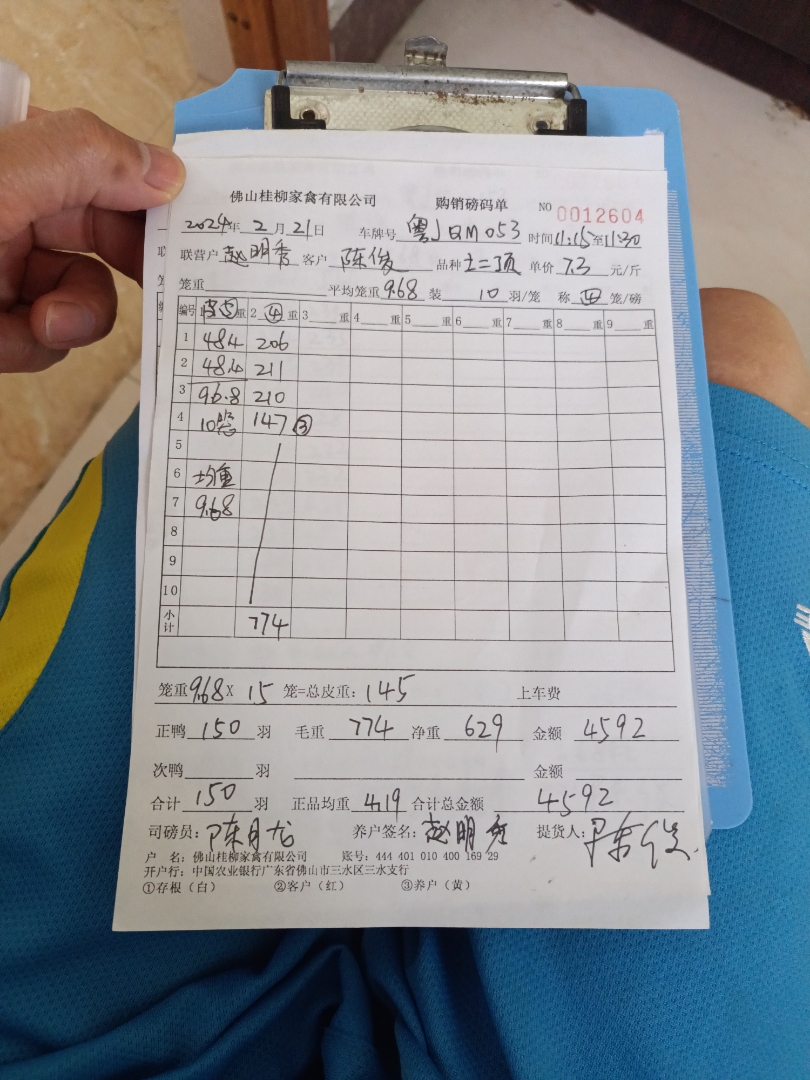 佛山桂柳家禽有限公司 购销磅码单 NO 0012604
2024年 2 月 21 日 车牌号 粤JQM053 时间 11:15 至 11:30
联营户 赵明秀 客户 陈俊 品种 土二顶 单价 7.3 元/斤
笼重 平均笼重 9.68 装 10 羽/笼 称 四 笼/磅
编号 1 ⑤ 重 2 ④ 重 3 重 4 重 5 重 6 重 7 重 8 重 9 重
1 48.4 206
2 48.4 211
3 96.8 210
4 10笼 147 ③
5
6 均重
7 9.68
8
9
10
小计 774
笼重 9.68 X 15 笼=总皮重: 145 上车费
正鸭 150 羽 毛重 774 净重 629 金额 4592
次鸭 羽 金额
合计 150 羽 正品均重 4.19 合计总金额 4592
司磅员: 陈月龙 养户签名: 赵明秀 提货人: 陈俊
户 名: 佛山桂柳家禽有限公司 账号: 444 401 010 400 169 29
开户行: 中国农业银行广东省佛山市三水区三水支行
①存根（白） ②客户（红） ③养户（黄）